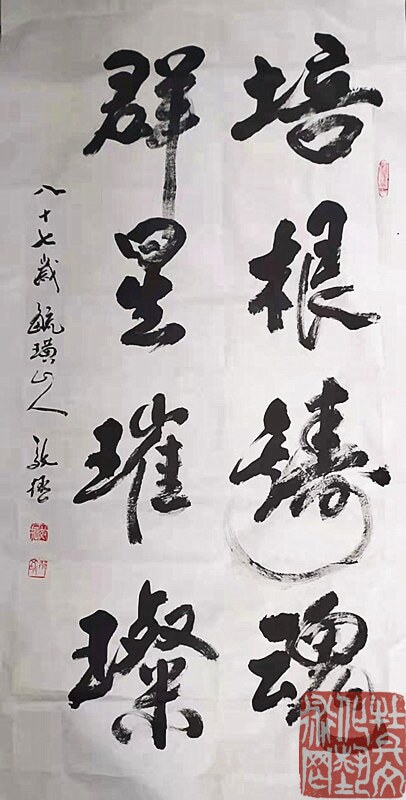 培根鑄魂
群星璀璨
八十七歲毓璜山人